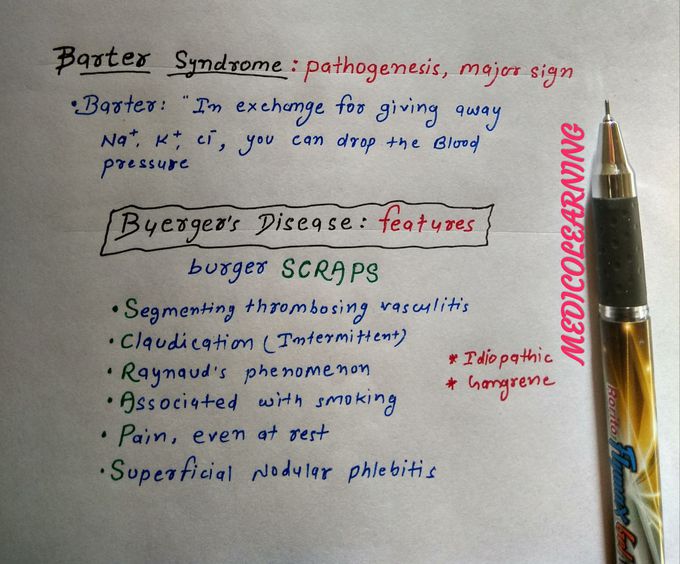 Barter Syndrome: pathogenesis, major sign
• Barter: "In exchange for giving away
Na+, K+, Cl-, you can drop the Blood
pressure
Buerger's Disease: features
burger SCRAPS
• Segmenting thrombosing vasculitis
• Claudication (Intermittent)
• Raynaud's phenomenon
• Associated with smoking
• Pain, even at rest
• Superficial Nodular phlebitis
* Idiopathic
* Gangrene
MEDICOLEARNING
Rorito